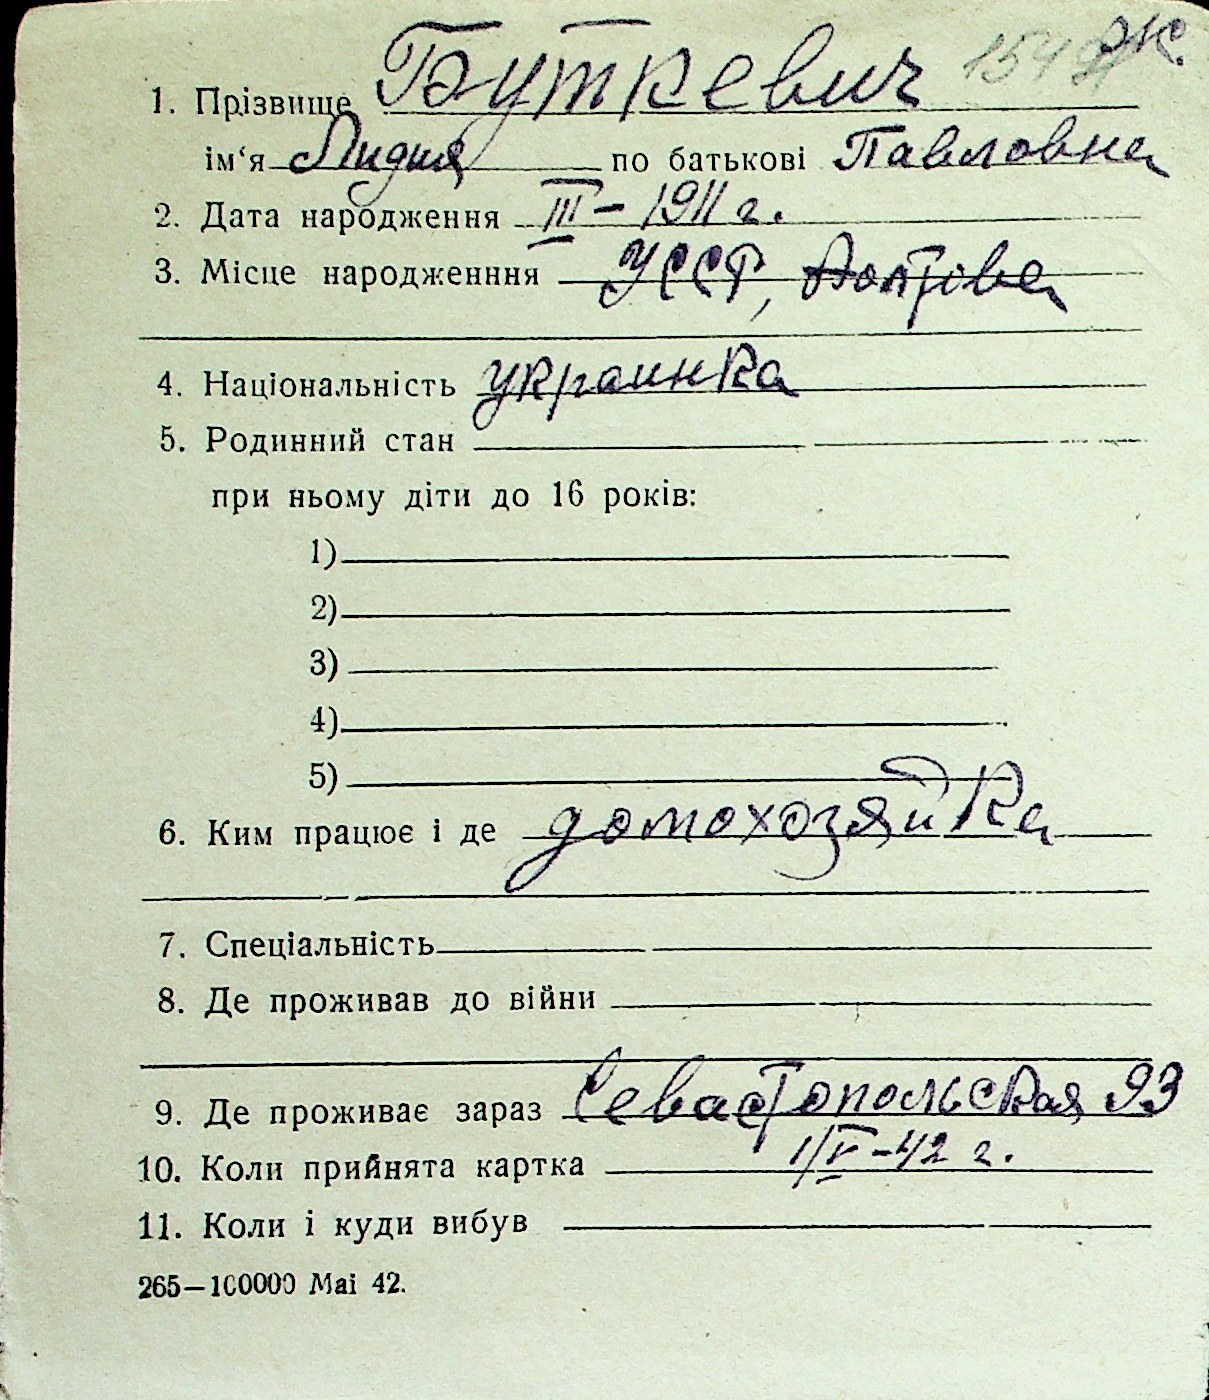 1549 Ж.
1. Прізвище Буткевич
ім‘я Лидия по батькові Павловна
2. Дата народження III – 1911 г.
3. Місце народженння УССР, Полтава
4. Національність украинка
5. Родинний стан
при ньому діти до 16 років:
1)
2)
3)
4)
5)
6. Ким працює і де домохозяйка
7. Спеціальність
8. Де проживав до війни
9. Де проживає зараз Севастопольская 93
10. Коли прийнята картка 1/V – 42 г.
11. Коли і куди вибув
265—100000 Mai 42.